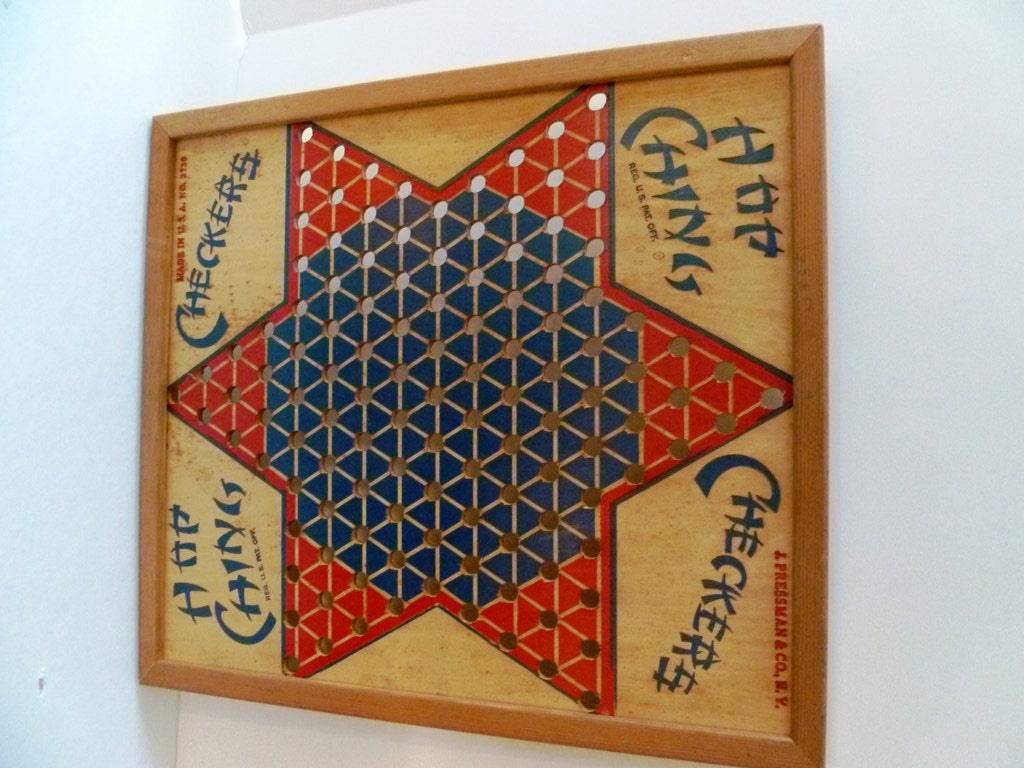 HOP
CHING
REG. U. S. PAT. OFF.
CHECKERS
J. PRESSMAN & CO., N. Y.
HOP
CHING
REG. U. S. PAT. OFF.
CHECKERS
MADE IN U. S. A. NO. 3738